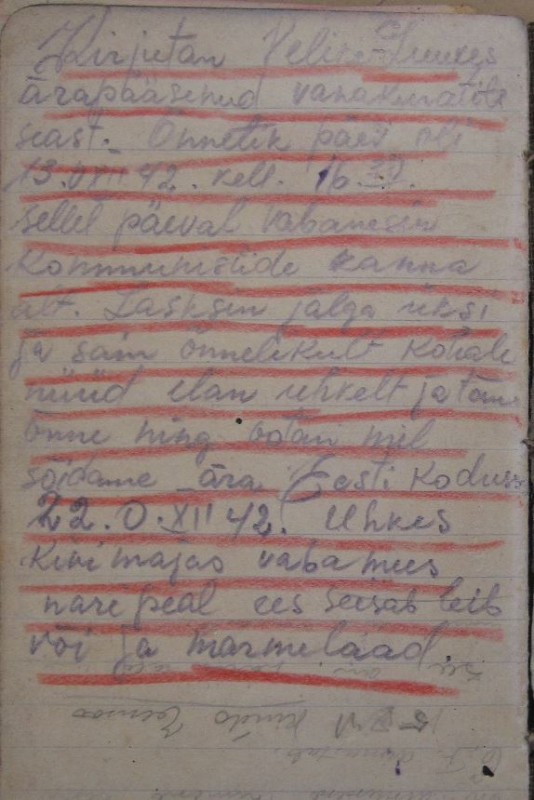 Kirjutan Velikije Luukes
ärapääsenud vanakuratite
seast. Õnnelik päev oli
13.XII 42. kell. 16.30.
sellel päeval vabanesin
kommunistide kanna
alt. Lasksin jalga üksi
ja sain õnnelikult kohale
nüüd elan uhkelt ja tänan
õnne ning ootan mil
sõidame ära Eesti Kodusse
22.0.XII 42. Uhkes
kivimajas vabamees
nari peal ees seisab leib
või ja marmelaad.